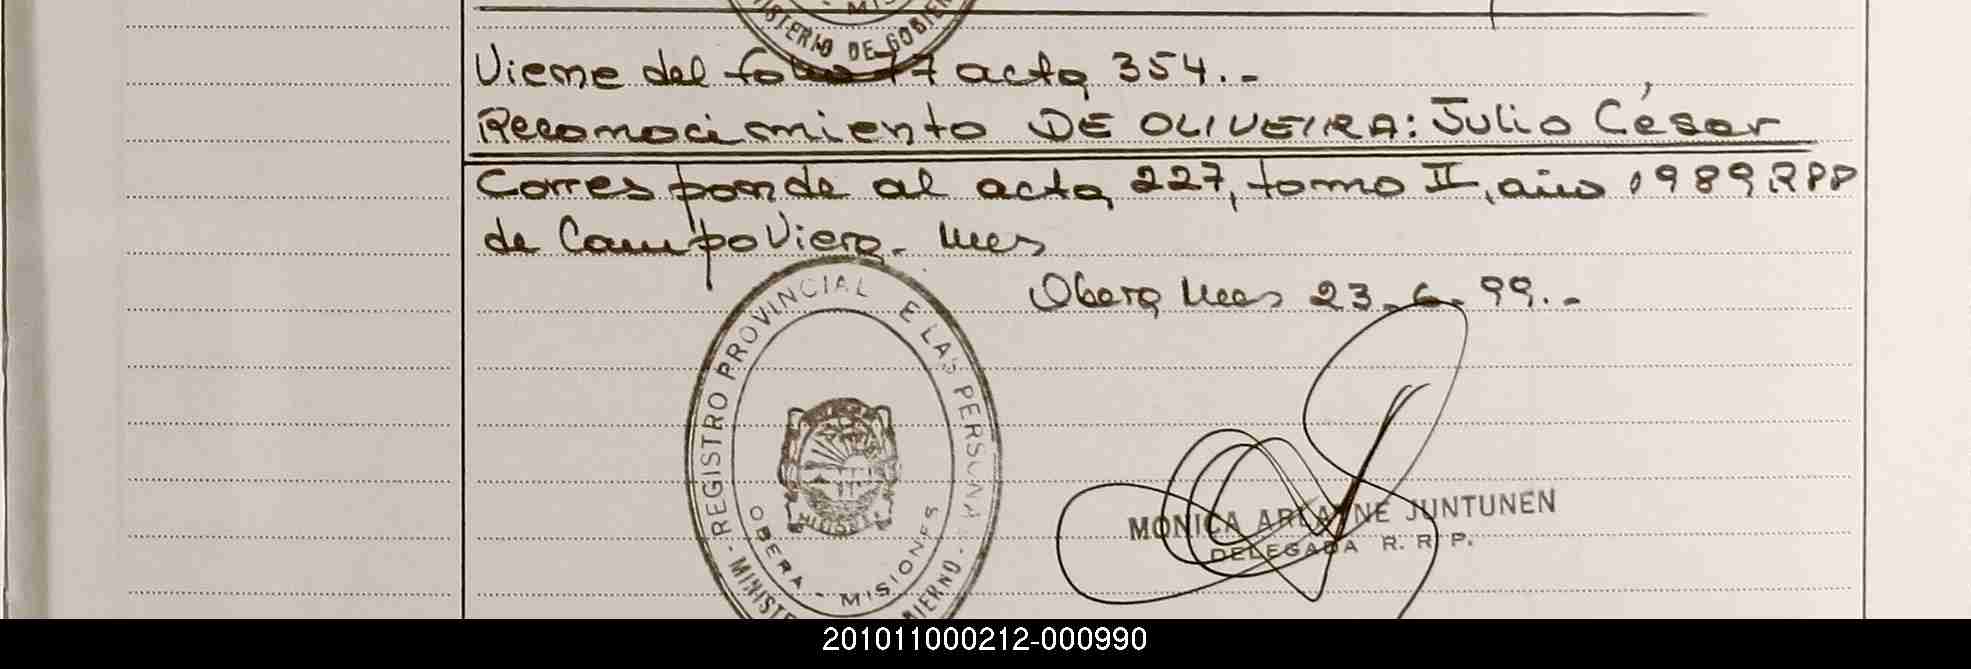 MI
ISTERIO DE GOBIER
Viene del folio 77 acta 354.-
Reconocimiento DE OLIVEIRA: Julio César
Corresponde al acta 227, tomo II, año 1989 RPP
de Campo Viera. Mes
Obera Mes 23-6-99.-
REGISTRO PROVINCIAL E LAS PERSONA
OBERA - MISIONES
MINISTE
BIERNO
MONICA ARIANNE JUNTUNEN
DELEGADA R. R. P.
201011000212-000990